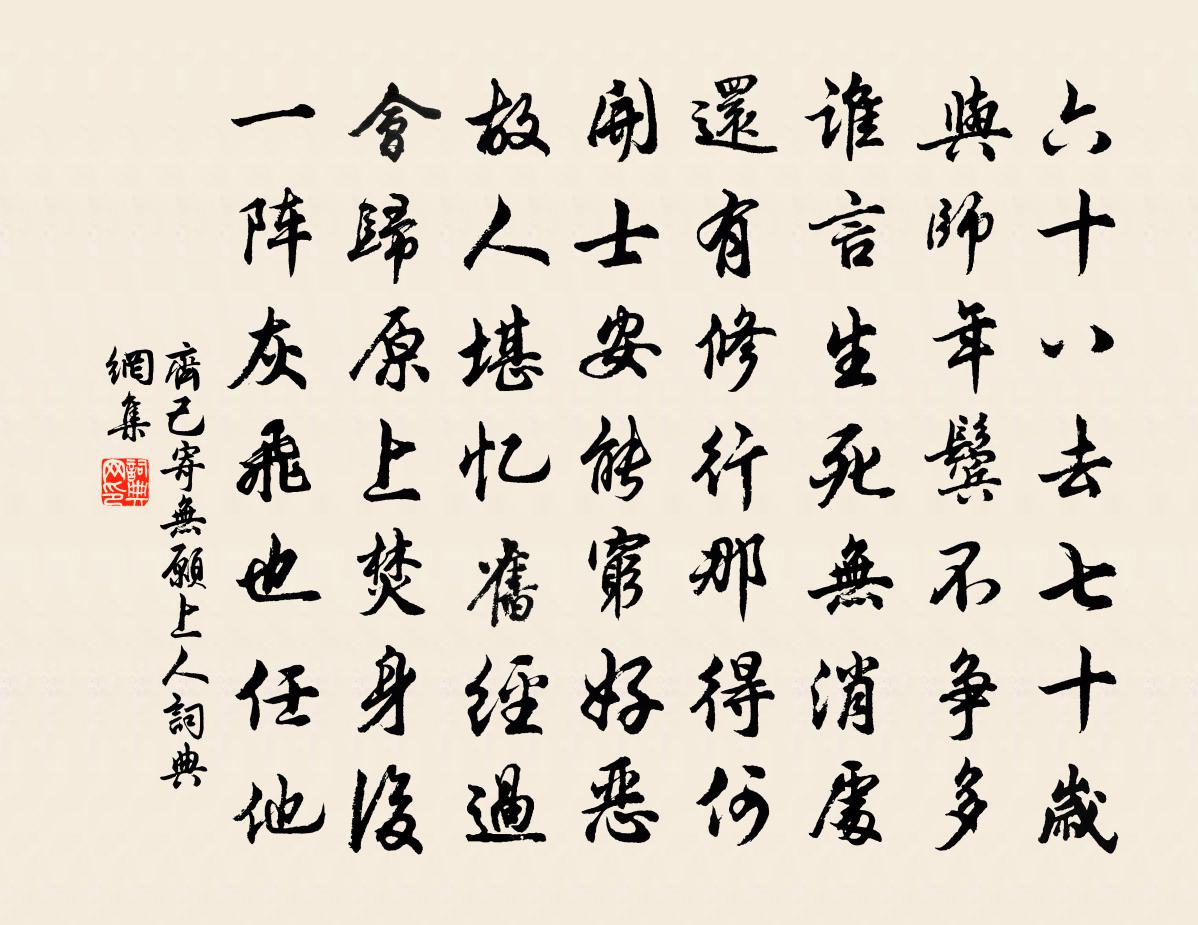 六十八去七十歲
與師年鬢不爭多
誰言生死無消處
還有修行那得何
開士安能窮好惡
故人堪忆舊經過
會歸原上焚身後
一阵灰飛也任他
齊己寄無願上人詞典
網集
詞典
网印